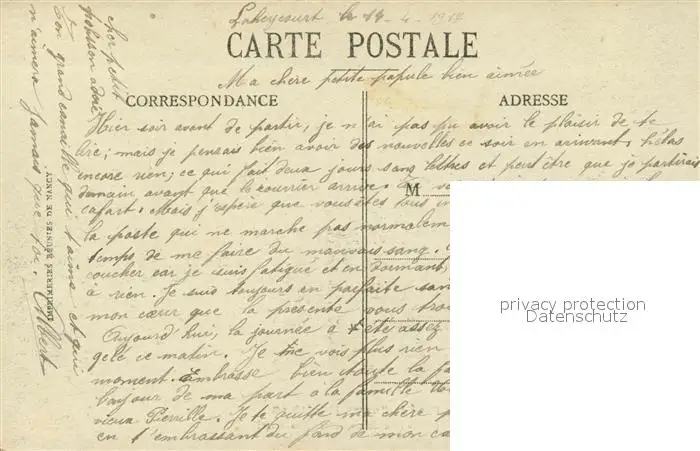 Laheycourt le 14-4-1917
CARTE POSTALE
Ma chère petite papule bien aimée
CORRESPONDANCE
ADRESSE
Hier soir avant de partir, je n'ai pas pu avoir le plaisir de te
lire; mais je pensais bien avoir des nouvelles ce soir en arrivant, hélas
encore rien; ce qui fait deux jours sans lettres et peut être que je partirais
demain avant que le courrier arrive.
M
cafart. Mais j'espère que vous êtes tous
la poste qui ne marche pas normalem
temps de me faire du mauvais sang.
coucher car je suis fatigué et en dormant,
à rien. Je suis toujours en parfaite san
mon cœur que la présente vous trou
Aujourd'hui, la journée à été assez
gelé ce matin. Je ne vois plus rien
moment. Embrasse bien toute la fa
bonjour de ma part à la famille
vieux Pierville. Je te quitte ma chère p
en t'embrassant du fond de mon ca
cher petit
poisson adoré
Ton grand canaille qui t'aime et qui
n'aimera jamais que toi. Albert
IMPRIMERIES REUNIES DE NANCY
privacy protection
Datenschutz